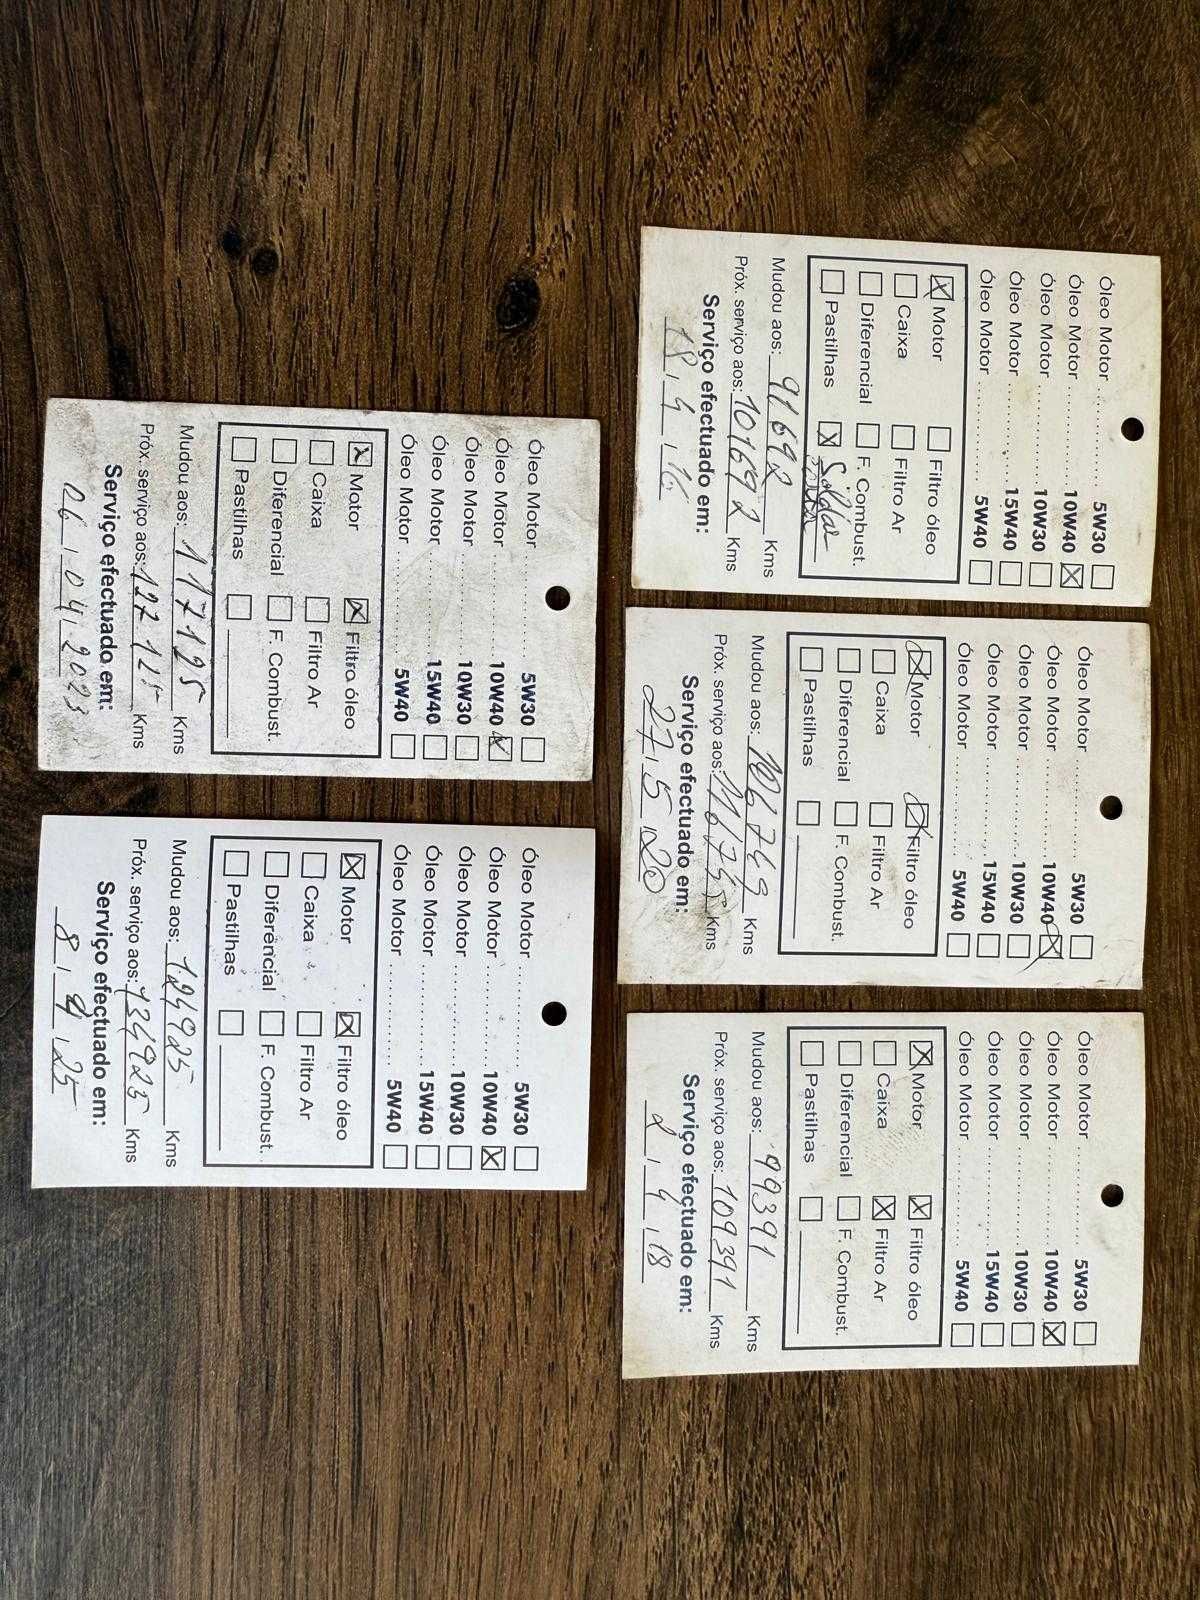 Óleo Motor ........... 5W30 ☐
Óleo Motor ........... 10W40 ☒
Óleo Motor ........... 10W30 ☐
Óleo Motor ........... 15W40 ☐
Óleo Motor ........... 5W40 ☐
☒ Motor ☐ Filtro óleo
☐ Caixa ☐ Filtro Ar
☐ Diferencial ☐ F. Combust.
☐ Pastilhas ☒ Soldar
Mudou aos: 91692 Kms
Próx. serviço aos: 101692 Kms
Serviço efectuado em:
18 4 16
Óleo Motor ........... 5W30 ☐
Óleo Motor ........... 10W40 ☒
Óleo Motor ........... 10W30 ☐
Óleo Motor ........... 15W40 ☐
Óleo Motor ........... 5W40 ☐
☒ Motor ☒ Filtro óleo
☐ Caixa ☐ Filtro Ar
☐ Diferencial ☐ F. Combust.
☐ Pastilhas ☐
Mudou aos: Kms
Próx. serviço aos: Kms
Serviço efectuado em:
27 5 20
Óleo Motor ........... 5W30 ☐
Óleo Motor ........... 10W40 ☒
Óleo Motor ........... 10W30 ☐
Óleo Motor ........... 15W40 ☐
Óleo Motor ........... 5W40 ☐
☒ Motor ☒ Filtro óleo
☐ Caixa ☒ Filtro Ar
☐ Diferencial ☐ F. Combust.
☐ Pastilhas ☐
Mudou aos: 99391 Kms
Próx. serviço aos: 109391 Kms
Serviço efectuado em:
2 4 18
Óleo Motor ........... 5W30 ☐
Óleo Motor ........... 10W40 ☒
Óleo Motor ........... 10W30 ☐
Óleo Motor ........... 15W40 ☐
Óleo Motor ........... 5W40 ☐
☒ Motor ☒ Filtro óleo
☐ Caixa ☐ Filtro Ar
☐ Diferencial ☐ F. Combust.
☐ Pastilhas ☐
Mudou aos: 117125 Kms
Próx. serviço aos: 127125 Kms
Serviço efectuado em:
06 04 2023
Óleo Motor ........... 5W30 ☐
Óleo Motor ........... 10W40 ☒
Óleo Motor ........... 10W30 ☐
Óleo Motor ........... 15W40 ☐
Óleo Motor ........... 5W40 ☐
☒ Motor ☒ Filtro óleo
☐ Caixa ☐ Filtro Ar
☐ Diferencial ☐ F. Combust.
☐ Pastilhas ☐
Mudou aos: 124925 Kms
Próx. serviço aos: 134925 Kms
Serviço efectuado em:
8 4 25